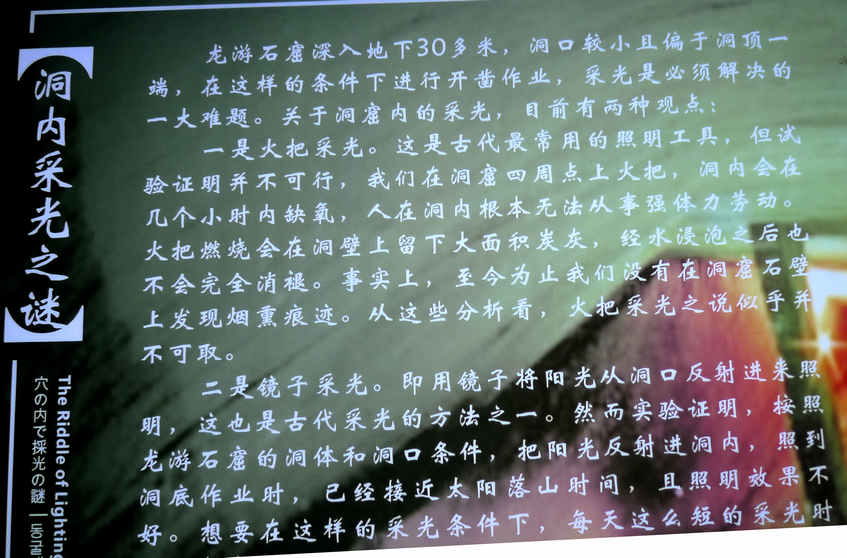 【洞内采光之谜】
The Riddle of Lighting
穴の内で採光の謎
龙游石窟深入地下30多米，洞口较小且偏于洞顶一
端，在这样的条件下进行开凿作业，采光是必须解决的
一大难题。关于洞窟内的采光，目前有两种观点：
一是火把采光。这是古代最常用的照明工具，但试
验证明并不可行，我们在洞窟四周点上火把，洞内会在
几个小时内缺氧，人在洞内根本无法从事强体力劳动。
火把燃烧会在洞壁上留下大面积炭灰，经水浸泡之后也
不会完全消褪。事实上，至今为止我们没有在洞窟石壁
上发现烟熏痕迹。从这些分析看，火把采光之说似乎并
不可取。
二是镜子采光。即用镜子将阳光从洞口反射进来照
明，这也是古代采光的方法之一。然而实验证明，按照
龙游石窟的洞体和洞口条件，把阳光反射进洞内，照到
洞底作业时，已经接近太阳落山时间，且照明效果不
好。想要在这样的采光条件下，每天这么短的采光时